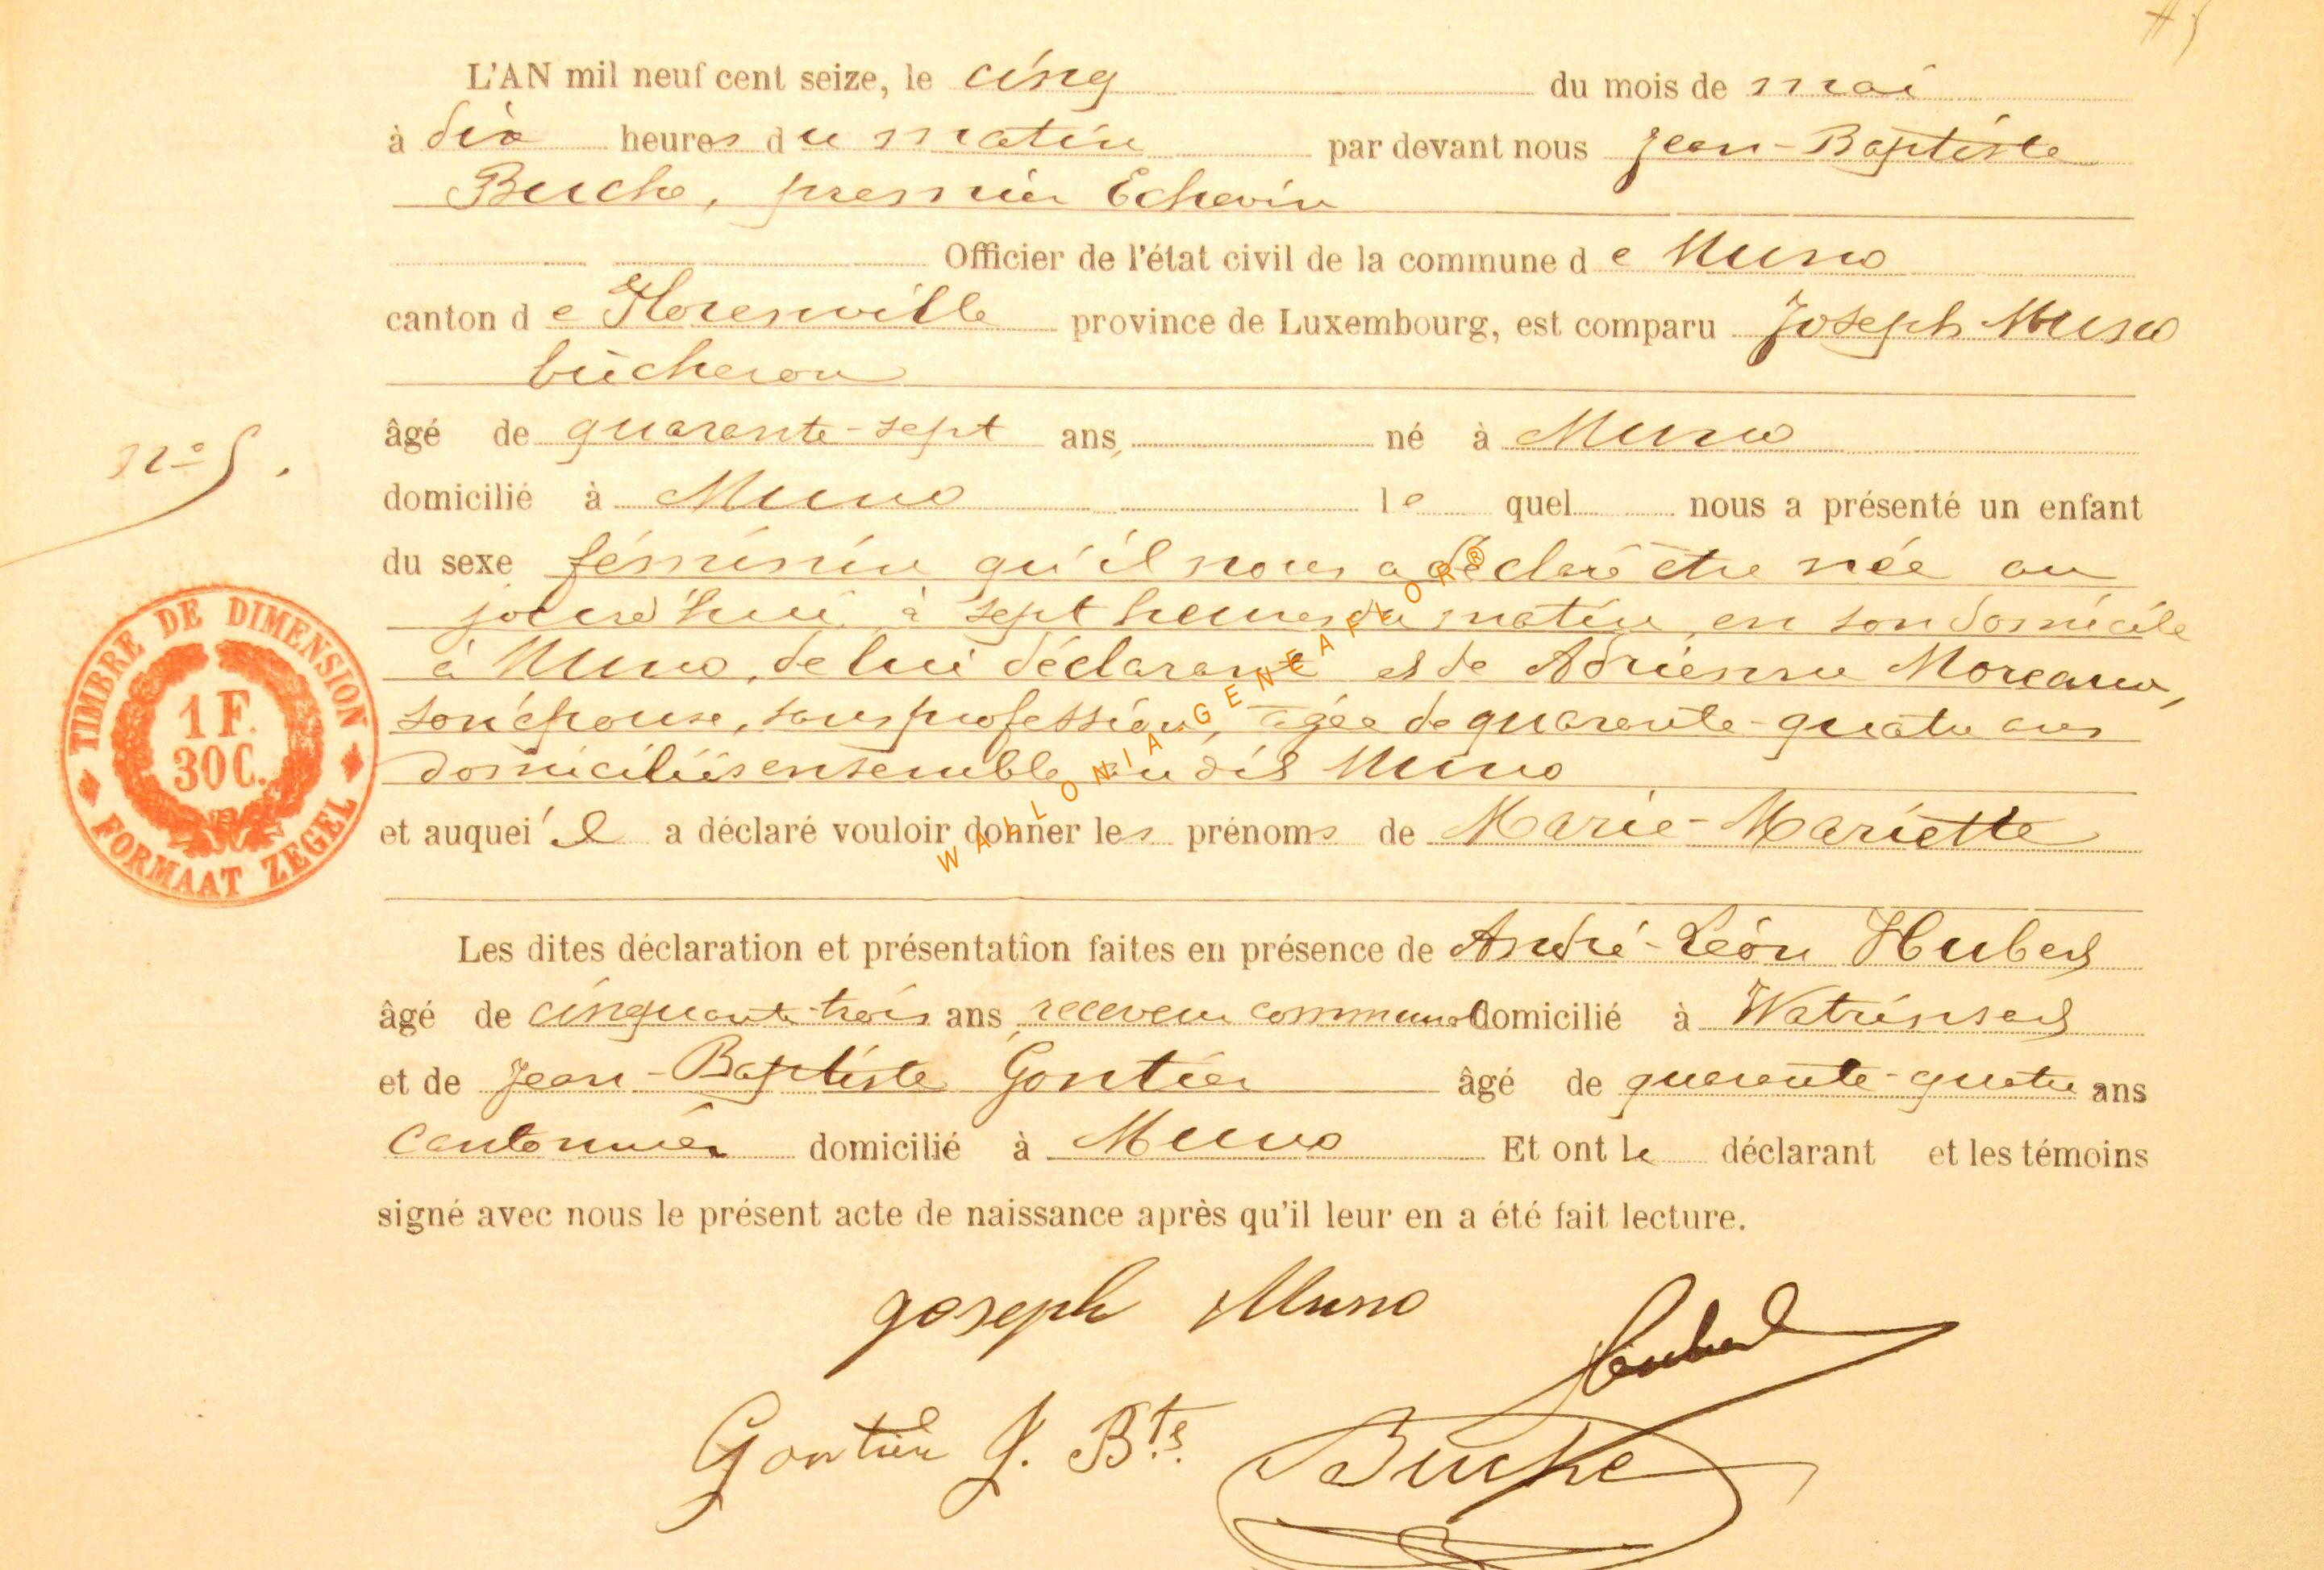 #5
L'AN mil neuf cent seize, le cinq du mois de mai
à dix heures du matin par devant nous Jean-Baptiste
Buche, premier Echevin
Officier de l'état civil de la commune de Muno
canton de Florenville province de Luxembourg, est comparu Joseph Muno
bûcheron
âgé de quarante-sept ans, né à Muno
n° 5.
domicilié à Muno le quel nous a présenté un enfant
du sexe féminin qu'il nous a déclaré être née au
jourd'hui à sept heures du matin en son domicile
à Muno, de lui déclarant et de Adrienne Moreaux,
son épouse, sans profession, âgée de quarante-quatre ans
domiciliés ensemble au dit Muno
et auquel il a déclaré vouloir donner les prénoms de Marie-Mariette
Les dites déclaration et présentation faites en présence de André-Léon Hubert
âgé de cinquante-trois ans receveur communal domicilié à Watrinsart
et de Jean-Baptiste Gontier âgé de quarante-quatre ans
Cantonnier domicilié à Muno Et ont le déclarant et les témoins
signé avec nous le présent acte de naissance après qu'il leur en a été fait lecture.
Joseph Muno
Hubert
Gontier J. Bte
Buche
TIMBRE DE DIMENSION
1 F.
30 C.
FORMAAT ZEGEL
WALLONIA GENEAFLOR®